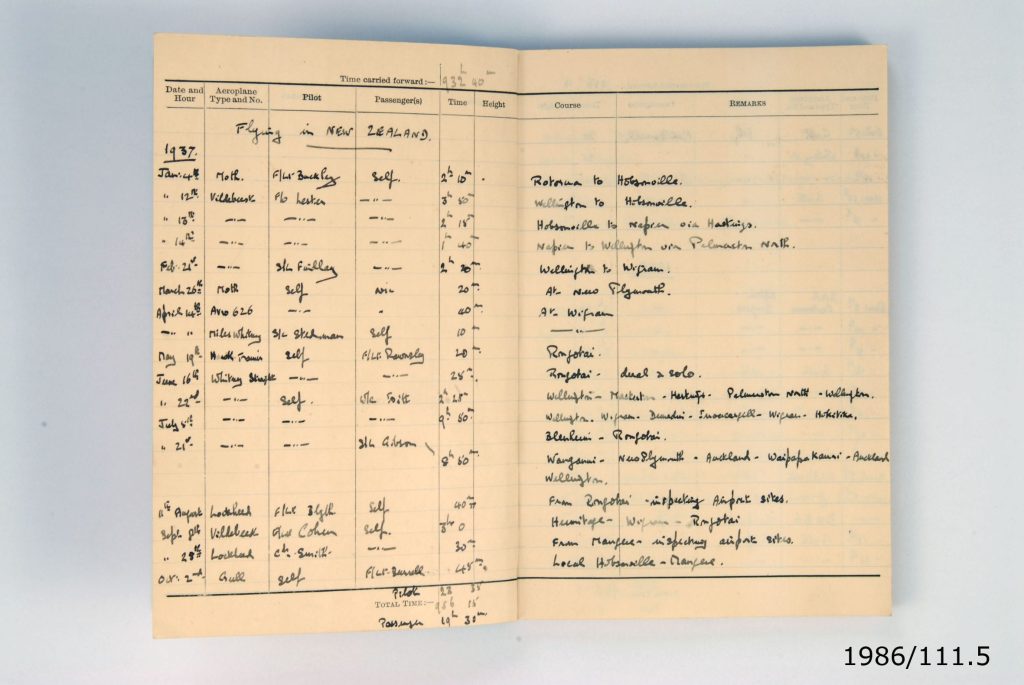 Time carried forward:— 932 h 40 m
Date and Hour Aeroplane Type and No. Pilot Passenger(s) Time Height Course REMARKS
Flying in NEW ZEALAND.
1937.
Jan. 4th Moth. F/Lt Buckley Self. 2h 10m Rotorua to Hobsonville.
" 12th Vildebeest F/O Lester —"— 3h 50m Wellington to Hobsonville.
" 13th —"— —"— —"— 2h 15m Hobsonville to Napier via Hastings.
" 14th —"— —"— —"— 1h 40m Napier to Wellington via Palmerston North.
Feb. 21st —"— S/Ldr Findlay —"— 2h 20m Wellington to Wigram.
March 26th Moth Self 20m At New Plymouth.
April 14th Avro 626 —"— " 40m At Wigram
— " " Miles Whitney Stedman Self 10m —"—
May 19th Self 20m Rongotai.
June 16th Whitney Straight —"— —"— 25m. Rongotai - dual & solo.
" 22nd —"— Self. 2h 25m Wellington - Masterton - Hastings - Palmerston North - Wellington.
July 5th —"— —"— —"— 9h 50m Wellington. Wigram - Dunedin - Invercargill - Wigram - Hokitika.
Blenheim - Rongotai.
" 21st —"— —"— Gibson 8h 50m Wanganui - New Plymouth - Auckland - Waipapakauri - Auckland
Wellington.
11th August Lockheed F/Lt Blyth Self 40m From Rongotai - inspecting Airport sites.
Sept. 8th Vildebeest F/Lt Cohen Self. 3h 0 Hermitage - Wigram - Rongotai
" 28th Lockheed Smith —"— 30m From Mangere - inspecting airport sites.
Oct. 2nd Gull Self F/Lt Burrell 45m. Local Hobsonville - Mangere.
Pilot 23 35
TOTAL TIME:— 956 15
Passenger 19h 30m
1986/111.5